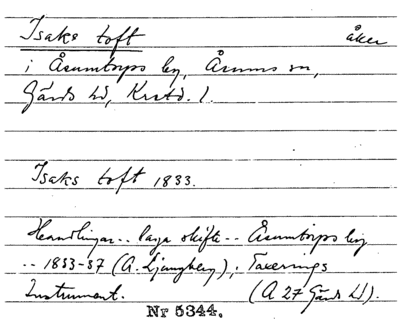 Isaks toft åker
i Åsumtorps by, Åsums sn,
Gärds hd, Krstd. l.
Isaks toft 1833.
Handlingar .. laga skifte .. Åsumtorps by
.. 1833-37 (A. Ljungberg), Taxerings
Instrument. (A 27 Gärds hd).
Nr 5344.